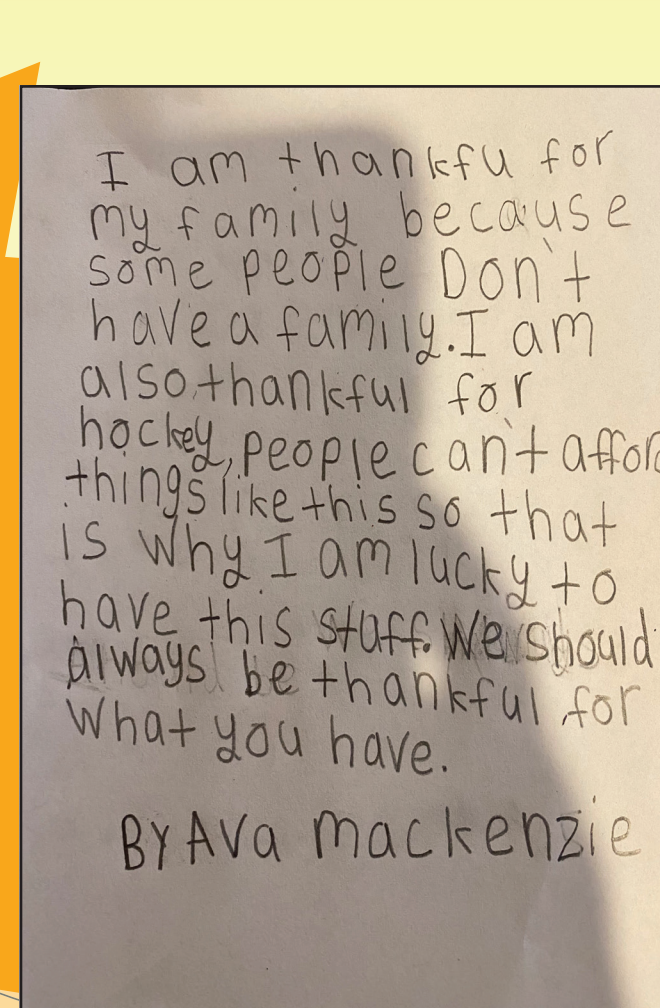 I am thankfu for
my family because
some people Don't
have a family. I am
also thankful for
hockey, people can't afford
things like this so that
is why I am lucky to
have this stuff. We should
always be thankful for
what you have.
By Ava mackenzie